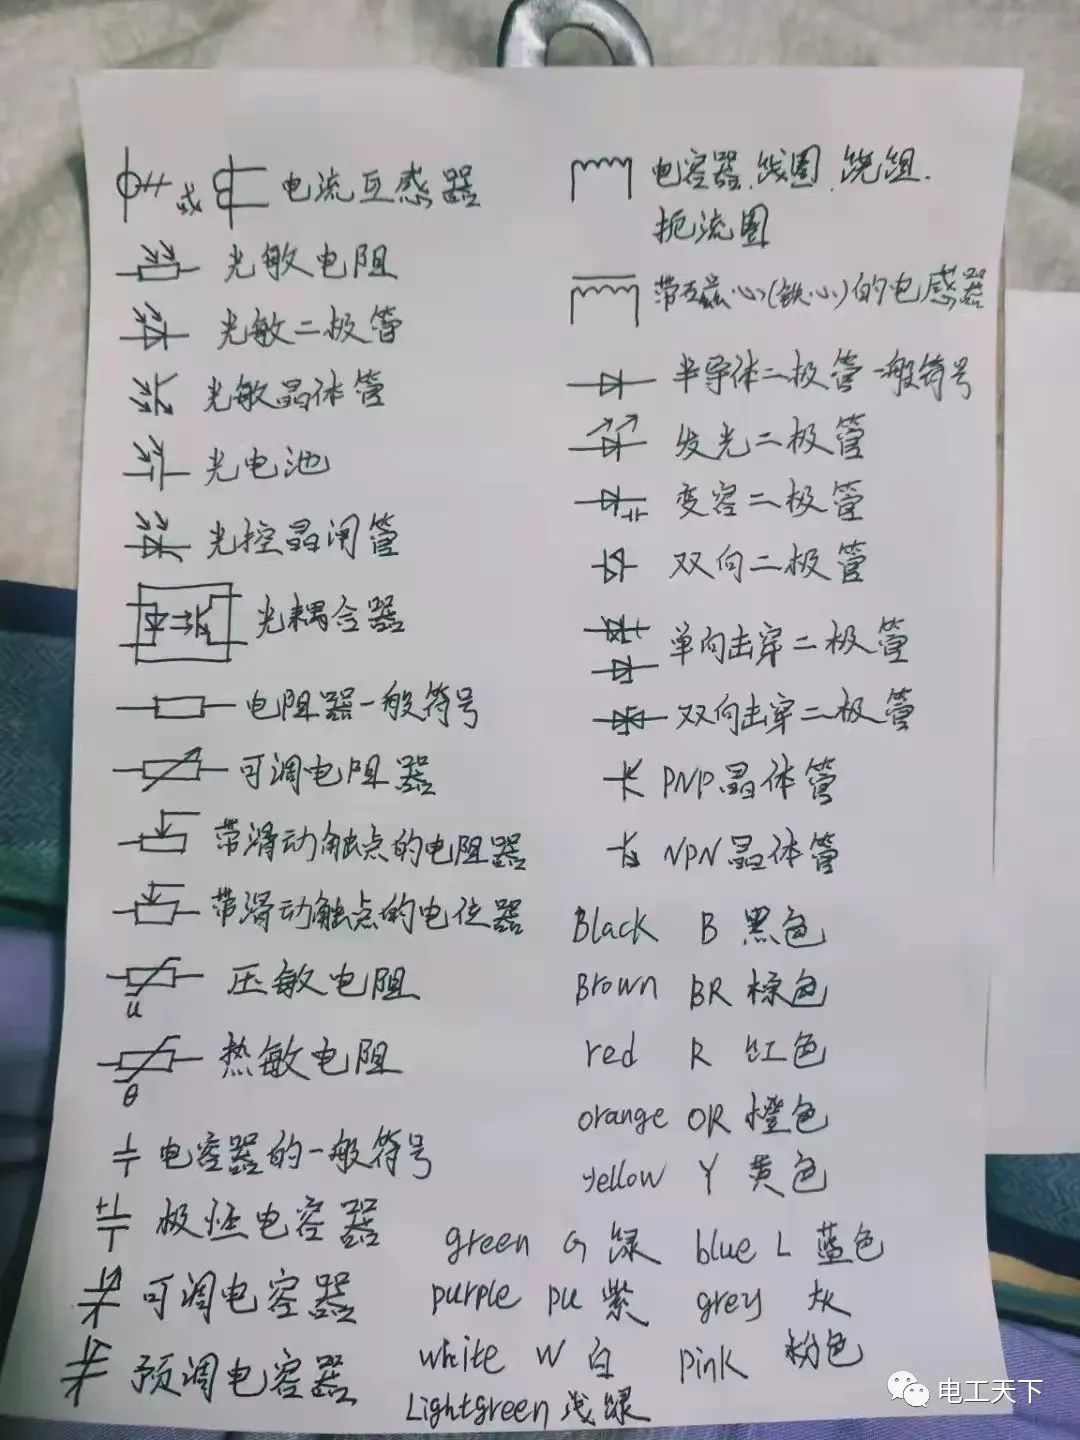 或 电流互感器
光敏电阻
光敏二极管
光敏晶体管
光电池
光控晶闸管
光耦合器
电阻器一般符号
可调电阻器
带滑动触点的电阻器
带滑动触点的电位器
u 压敏电阻
θ 热敏电阻
电容器的一般符号
+ 极性电容器
可调电容器
预调电容器
电容器.线圈.绕组.
扼流圈
带磁心(铁心)的电感器
半导体二极管一般符号
发光二极管
变容二极管
双向二极管
单向击穿二极管
双向击穿二极管
PNP晶体管
NPN晶体管
Black B 黑色
Brown BR 棕色
red R 红色
orange OR 橙色
yellow Y 黄色
green G 绿 blue L 蓝色
purple pu 紫 grey 灰
white W 白 pink 粉色
Lightgreen 浅绿
电工天下